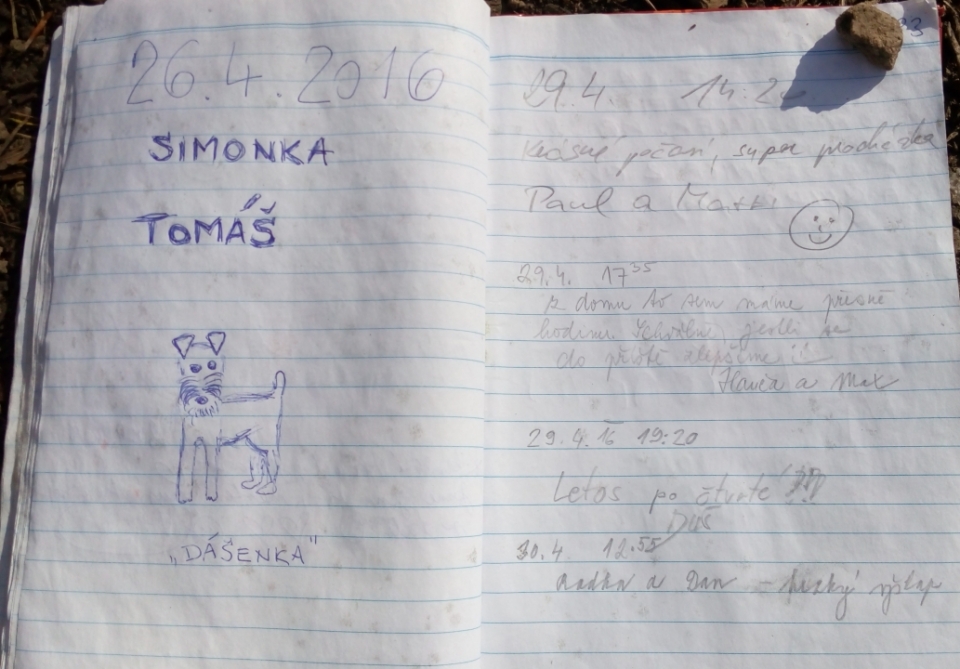 26.4.2016
SIMONKA
TOMÁŠ
„DÁŠENKA"
29.4. 14:2
Krásné počasí, super procházka
Paul a
29.4. 17³⁵
z domu to sem máme přesně
hodinu jestli se
do příště zlepšíme
a Max
29.4.16 19:20
Letos po čtvrté !!!
30.4. 12:55
Radka a Dan – hezký výstup